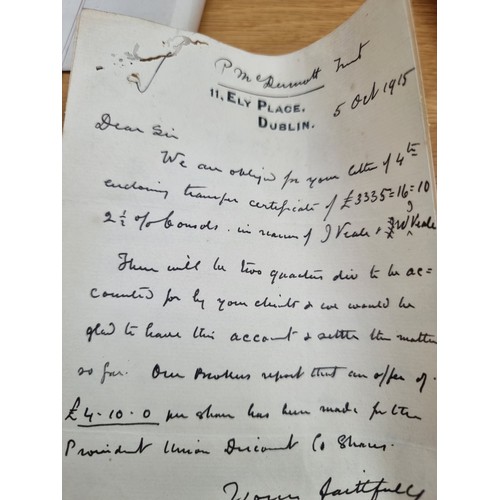 P McDermott Trust
11, ELY PLACE,
DUBLIN.
5 Oct 1915
Dear Sir
We are obliged for your letter of 4th
enclosing transfer certificate of £3335=16=10
2½% Consols in names of J Veale & W J Veale
There will be two quarters div to be ac=
counted for by your clients & we would be
glad to have this account & settle the matter
so far. Our Brokers report that an offer of
£4.10.0 per share has been made for the
Provident Union Discount Co Shares.
Yours faithfully